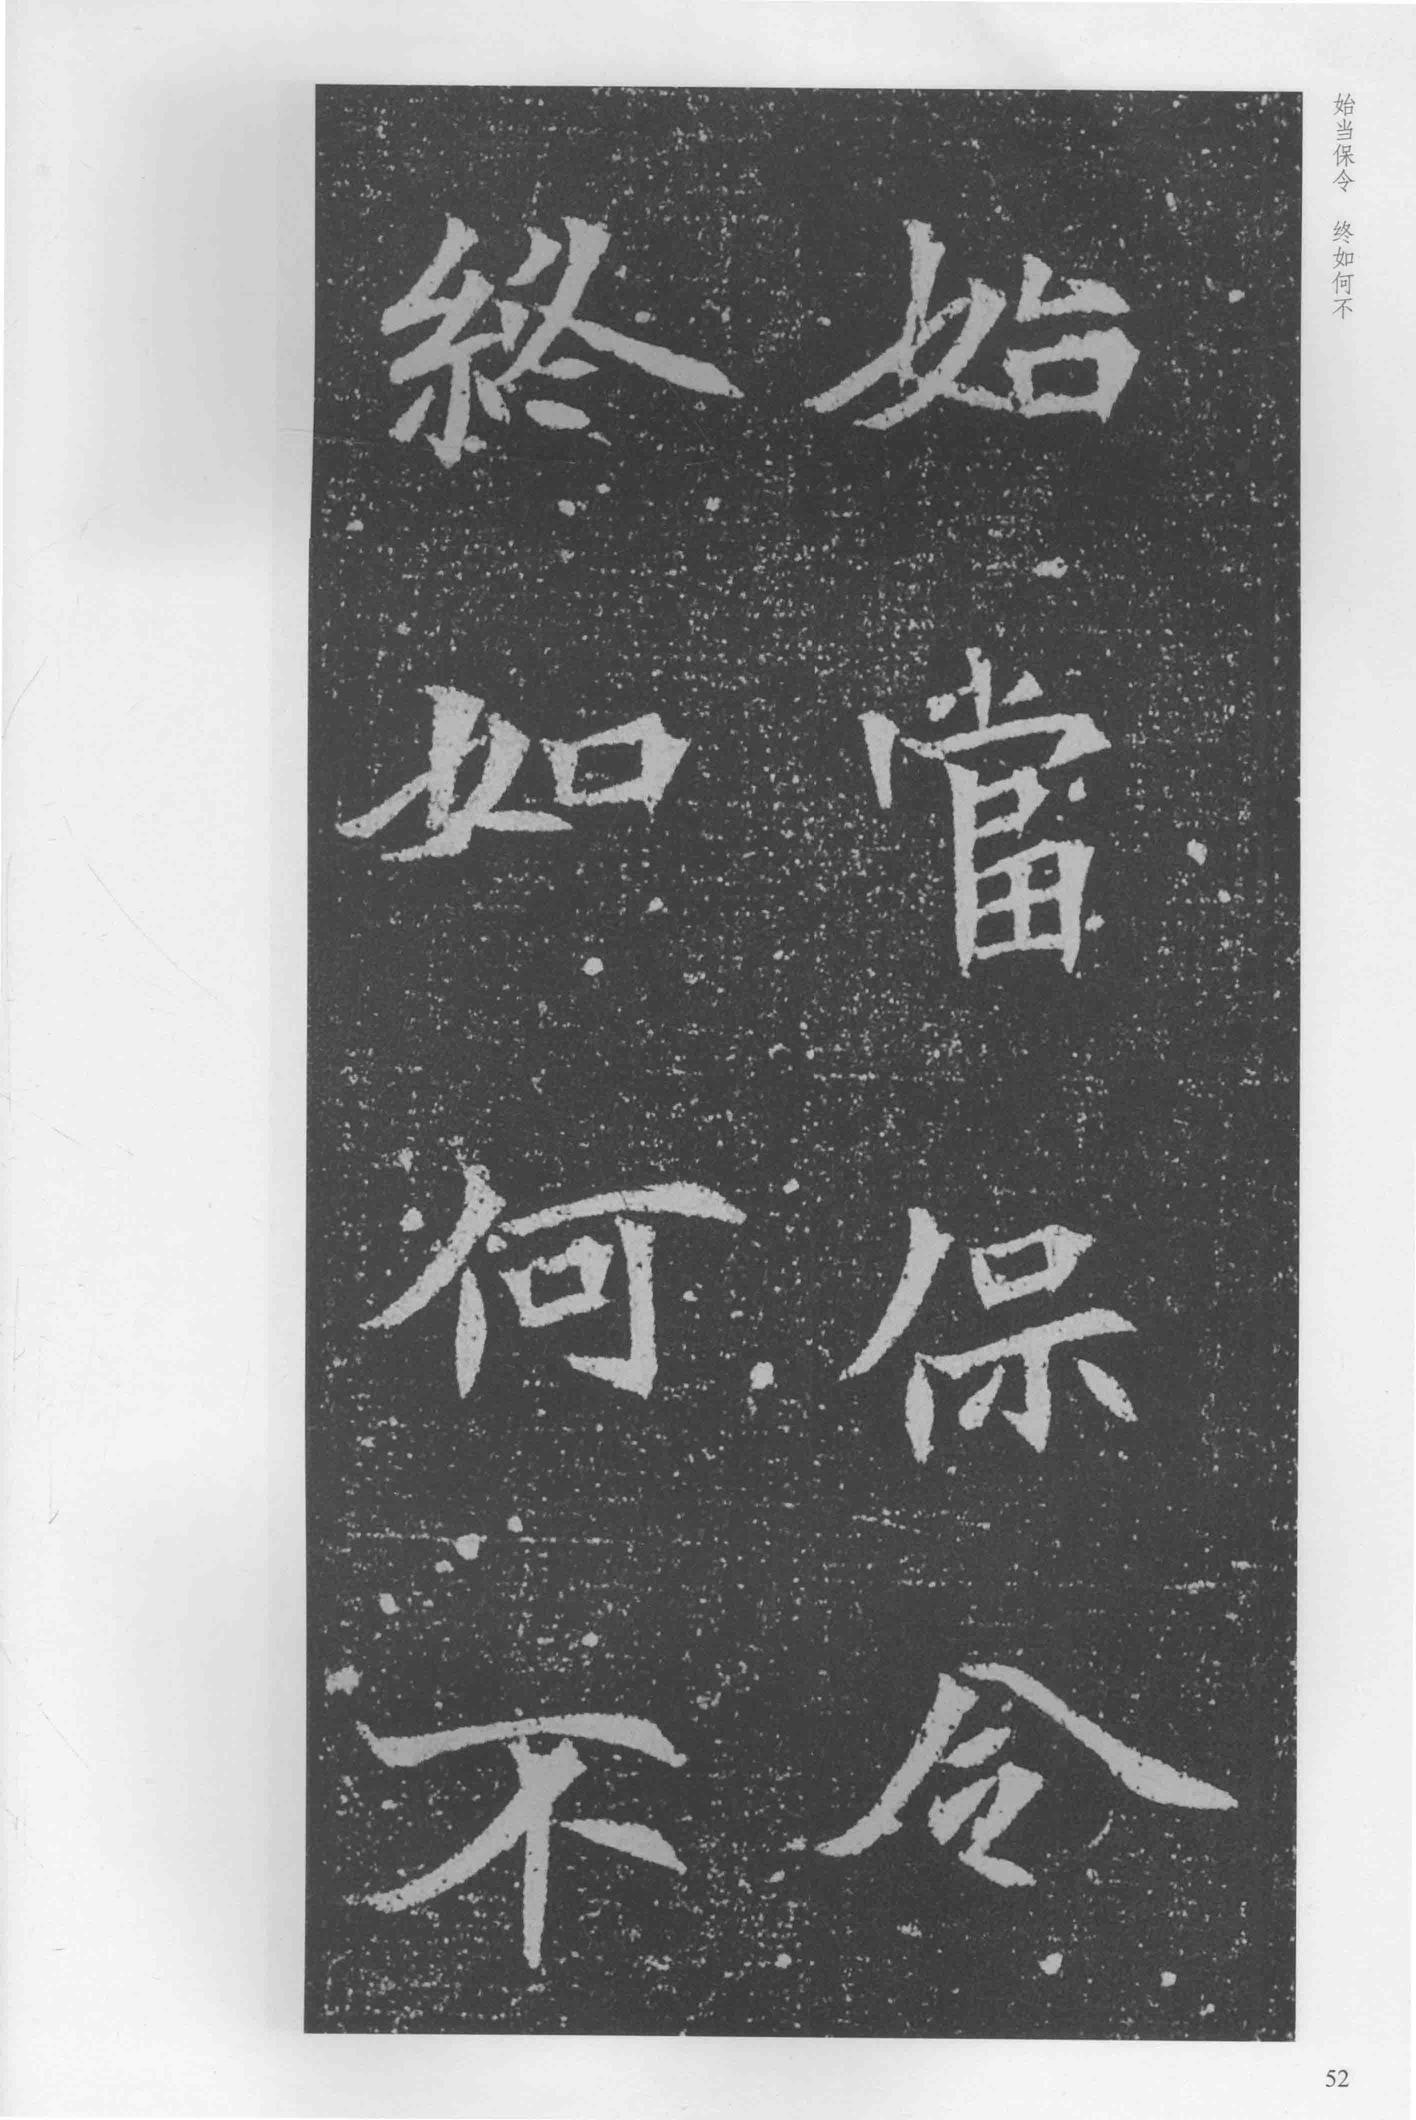 始當保令
終如何不
始当保令 终如何不
52